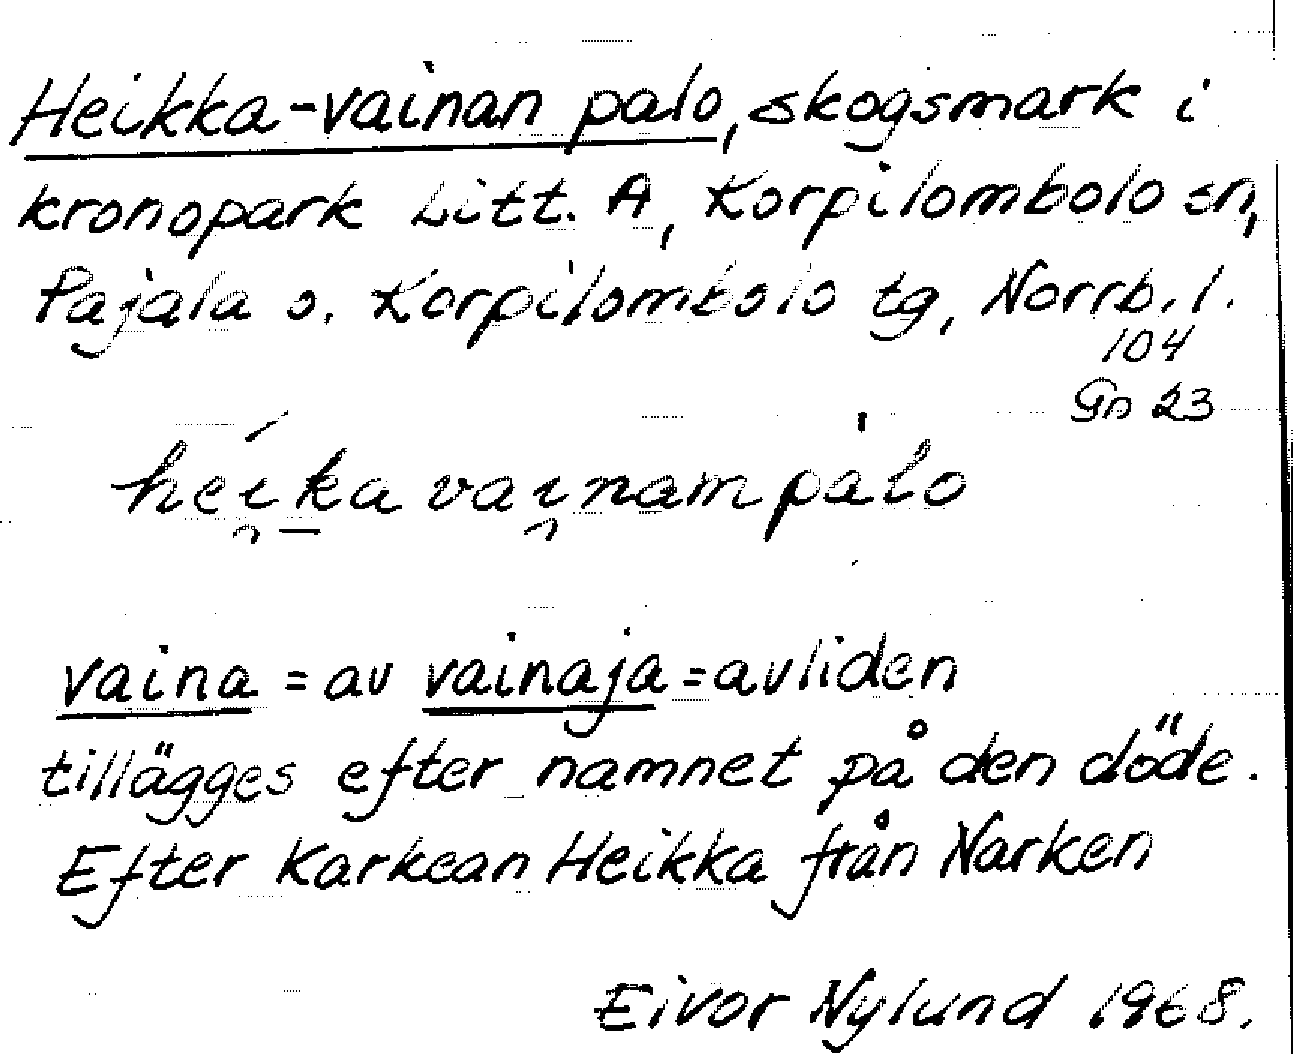 Heikka-vainan palo, skogsmark i
kronopark Litt. A, Korpilombolo sn,
Pajala o. Korpilombolo tg, Norrb. l.
104
Gn 23
hei̯k̲a vai̯nampàlo
vaina = av vainaja = avliden
tillägges efter namnet på den döde.
Efter Karkean Heikka från Narken
Eivor Nylund 1968.